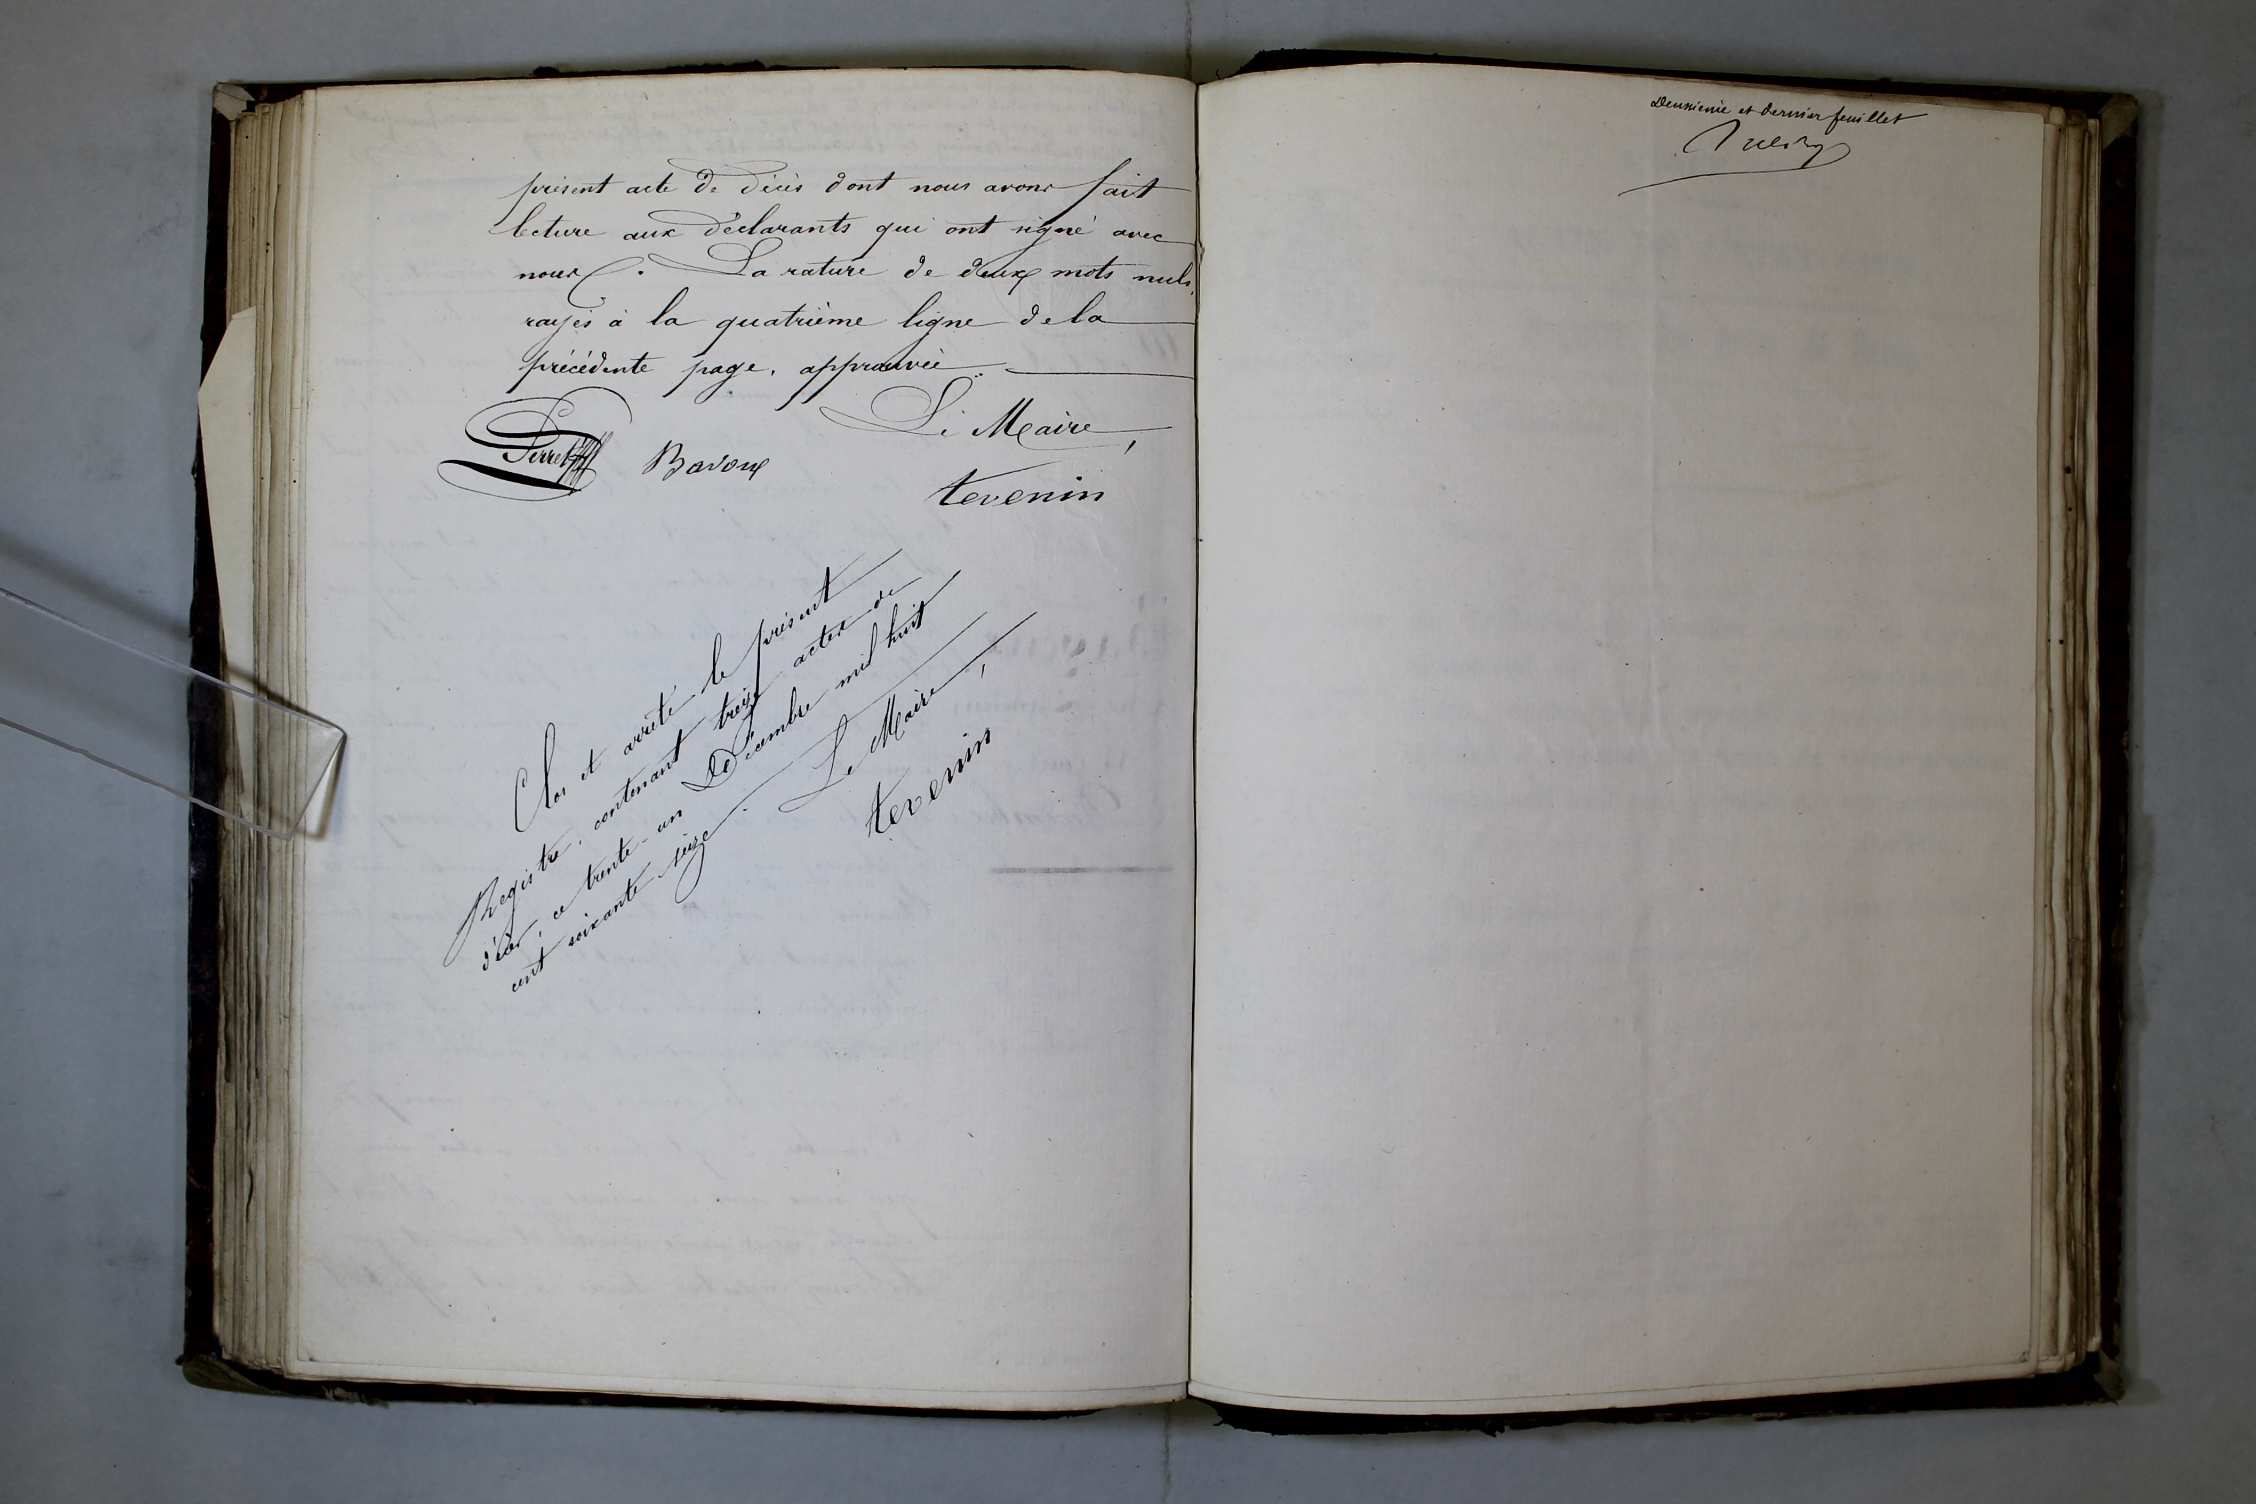 présent acte de décès dont nous avons fait
lecture aux déclarants qui ont signé avec
nous. La rature de deux mots nuls,
rayés à la quatrième ligne de la
précédente page, approuvée.
Le Maire,
Perret Bavoux
tevenin
Clos et arrêté le présent
Registre, contenant treize actes de
décès, ce trente-un Décembre mil huit
cent soixante seize.
Le Maire,
tevenin
Deuxième et dernier feuillet